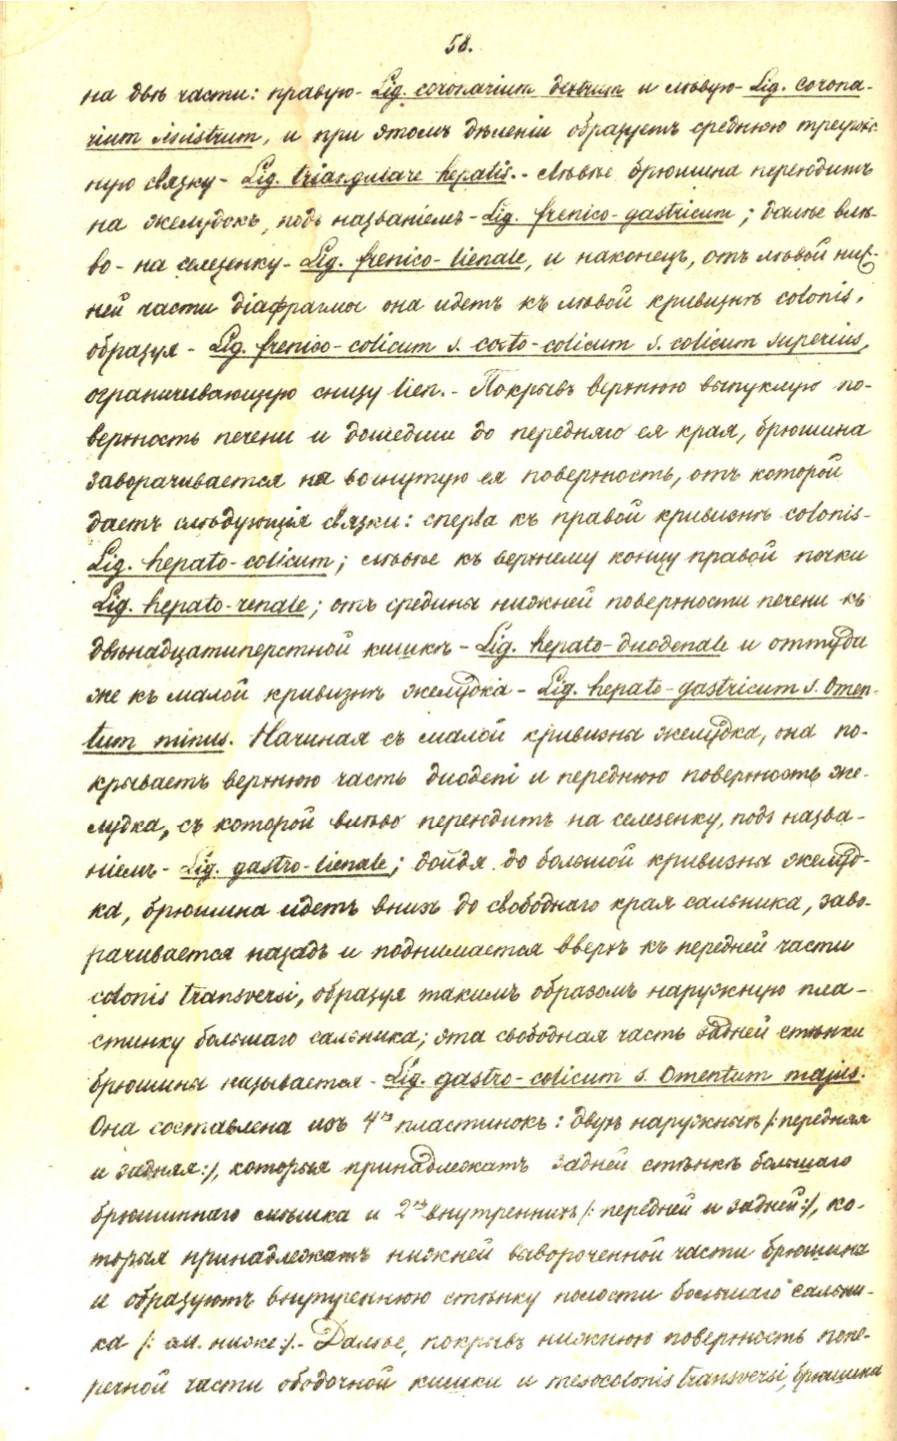 58.
на двѣ части: правую - Lig. coronarium dextrum и лѣвую - Lig. corona-
rium sinistrum, и при этомъ дѣленіи образуетъ среднюю треуголь-
ную связку - Lig. triangulare hepatis. - Лѣвѣе брюшина переходитъ
на желудокъ, подъ названіемъ - Lig. frenico-gastricum; далѣе влѣ-
во - на селезенку - Lig. frenico-lienale, и наконецъ, отъ лѣвой ниж-
ней части діафрагмы она идетъ къ лѣвой кривизнѣ colonis,
образуя - Lig. frenico-colicum s. costo-colicum s. colicum superius,
ограничивающую снизу lien. - Покрывъ верхнюю выпуклую по-
верхность печени и дошедши до передняго ея края, брюшина
заворачивается на вогнутую ея поверхность, отъ которой
даетъ слѣдующія связки: сперва къ правой кривизнѣ colonis -
Lig. hepato-colicum; лѣвѣе къ верхнему концу правой почки
Lig. hepato-renale; отъ средины нижней поверхности печени къ
двѣнадцатиперстной кишкѣ - Lig. hepato-duodenale и оттуда
же къ малой кривизнѣ желудка - Lig. hepato-gastricum s. Omen-
tum minus. Начиная съ малой кривизны желудка, она по-
крываетъ верхнюю часть duodeni и переднюю поверхность же-
лудка, съ которой влѣво переходитъ на селезенку, подъ назва-
ніемъ - Lig. gastro-lienale; дойдя до большой кривизны желуд-
ка, брюшина идетъ внизъ до свободнаго края сальника, заво-
рачивается назадъ и поднимается вверхъ къ передней части
colonis transversi, образуя такимъ образомъ наружную пла-
стинку большаго сальника; эта свободная часть задней стѣнки
брюшины называется - Lig. gastro-colicum s. Omentum majus.
Она составлена изъ 4хъ пластинокъ: двухъ наружныхъ /: передняя
и задняя:/, которыя принадлежатъ задней стѣнкѣ большаго
брюшиннаго мѣшка и 2хъ внутреннихъ /: передней и задней:/, ко-
торыя принадлежатъ нижней вывороченной части брюшины
и образуютъ внутреннюю стѣнку полости большаго сальни-
ка /: см. ниже:/. - Далѣе, покрывъ нижнюю поверхность попе-
речной части ободочной кишки и mesocolonis transversi, брюшина